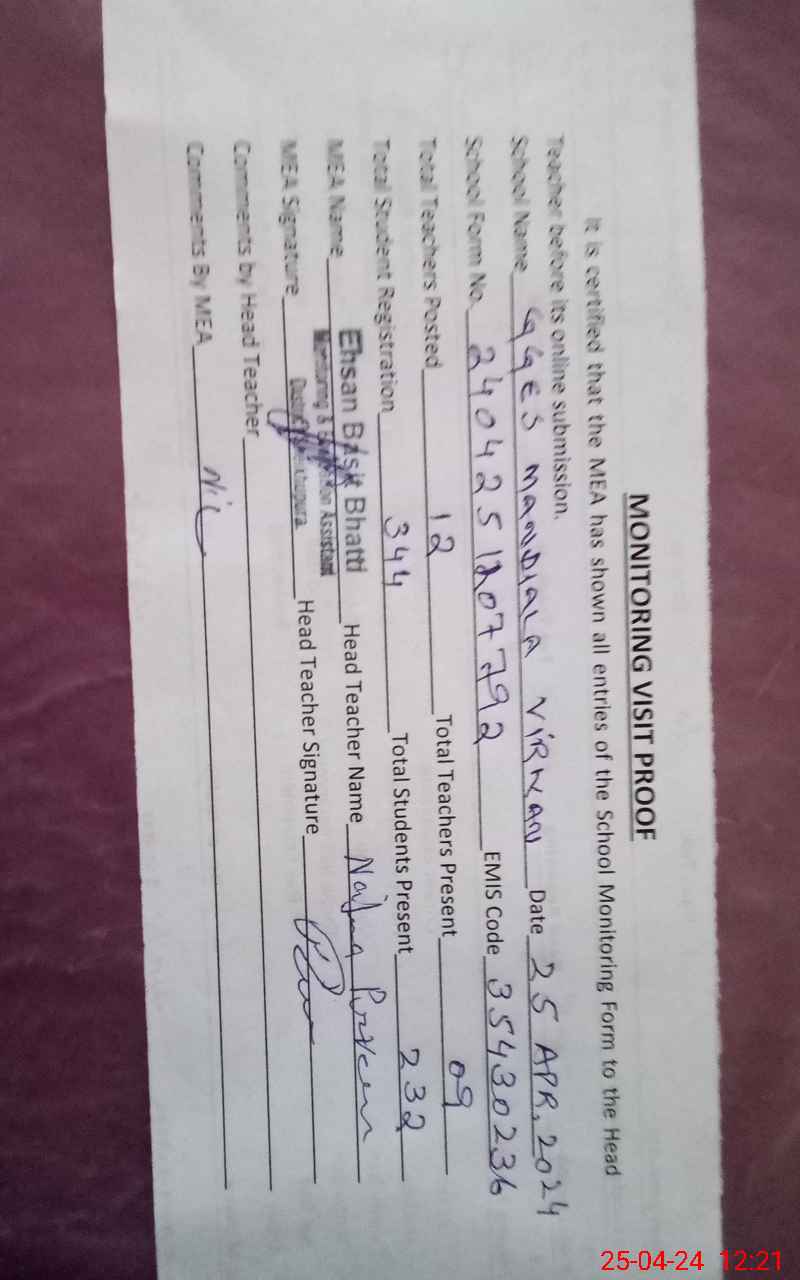 MONITORING VISIT PROOF
It is certified that the MEA has shown all entries of the School Monitoring Form to the Head
Teacher before its online submission.
School Name GGES MANDIALA VIRKAN Date 25 APR, 2024
School Form No. 2404251207792 EMIS Code 35430236
Total Teachers Posted 12 Total Teachers Present 09
Total Student Registration 344 Total Students Present 232
MEA Name Ehsan Basit Bhatti Head Teacher Name Najma Parveen
Monitoring & Evaluation Assistant
MEA Signature District Sheikhupura Head Teacher Signature
Comments by Head Teacher
Comments By MEA Nil
25-04-24 12:21